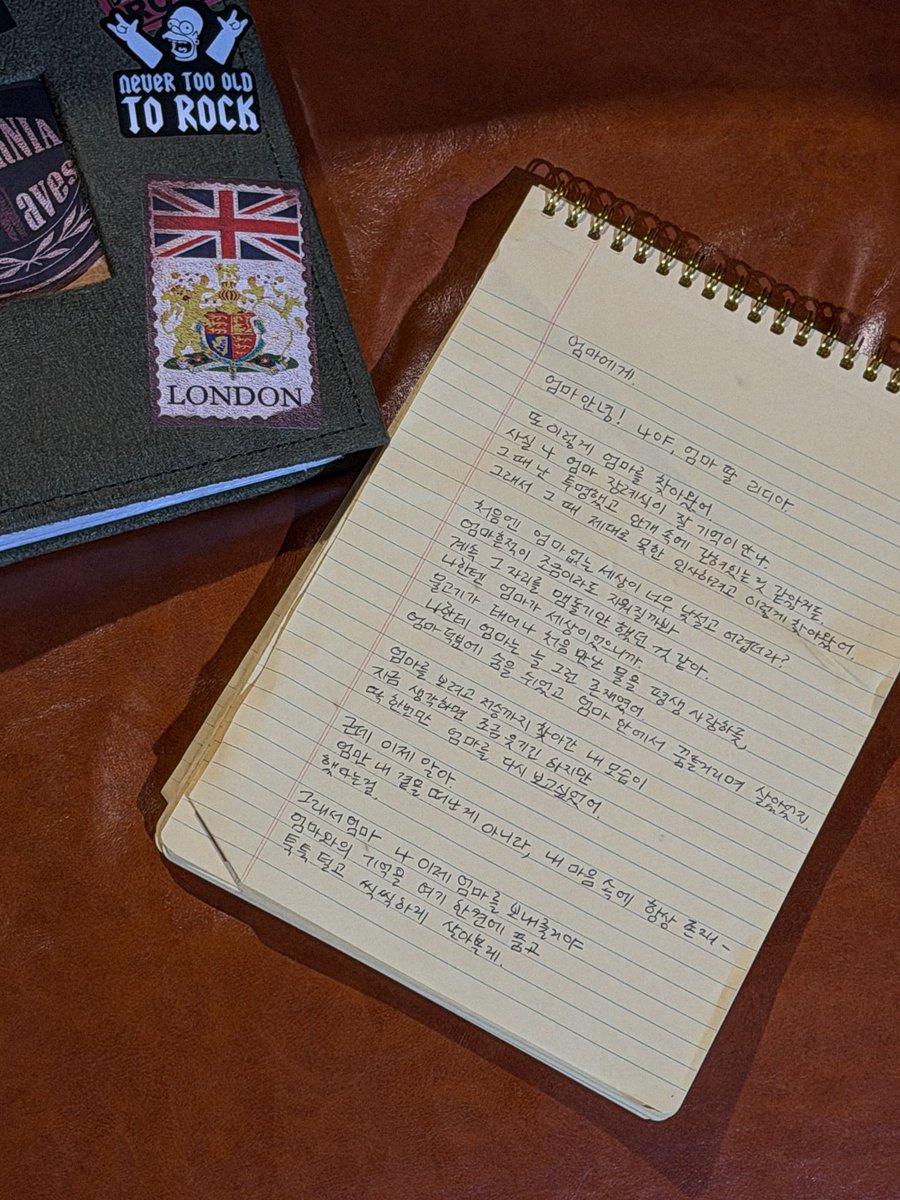 NEVER TOO OLD
TO ROCK
NIA
Waves
LONDON
엄마에게.
엄마 안녕! 나야, 엄마 딸 리디아.
또 이렇게 엄마를 찾아왔어
사실 나 엄마 장례식이 잘 기억이 안나.
그때 난 투명했고 안개 속에 갇혀있는 것 같았거든.
그래서 그 때 제대로 못한 인사하려고 이렇게 찾아왔어.
처음엔 엄마 없는 세상이 너무 낯설고 어렵더라?
엄마 흔적이 조금이라도 지워질까봐
계속 그 자리를 맴돌기만 했던 것 같아.
나한텐 엄마가 세상이었으니까.
물고기가 태어나 처음 만난 물을 평생 사랑하듯,
나한테 엄마는 늘 그런 존재였어.
엄마 덕분에 숨을 쉬었고 엄마 안에서 꿈틀거리며 살았었지.
엄마를 보려고 저승까지 찾아간 내 모습이
지금 생각하면 조금 웃기긴 하지만
딱 한번만 엄마를 다시 보고싶었어.
근데 이제 알아.
엄만 내 곁을 떠난게 아니라, 내 마음 속에 항상 존재-
했다는걸.
그래서 엄마 나 이제 엄마를 보내줄거야
엄마와의 기억을 여기 한켠에 품고
툭툭 털고 씩씩하게 살아볼게.